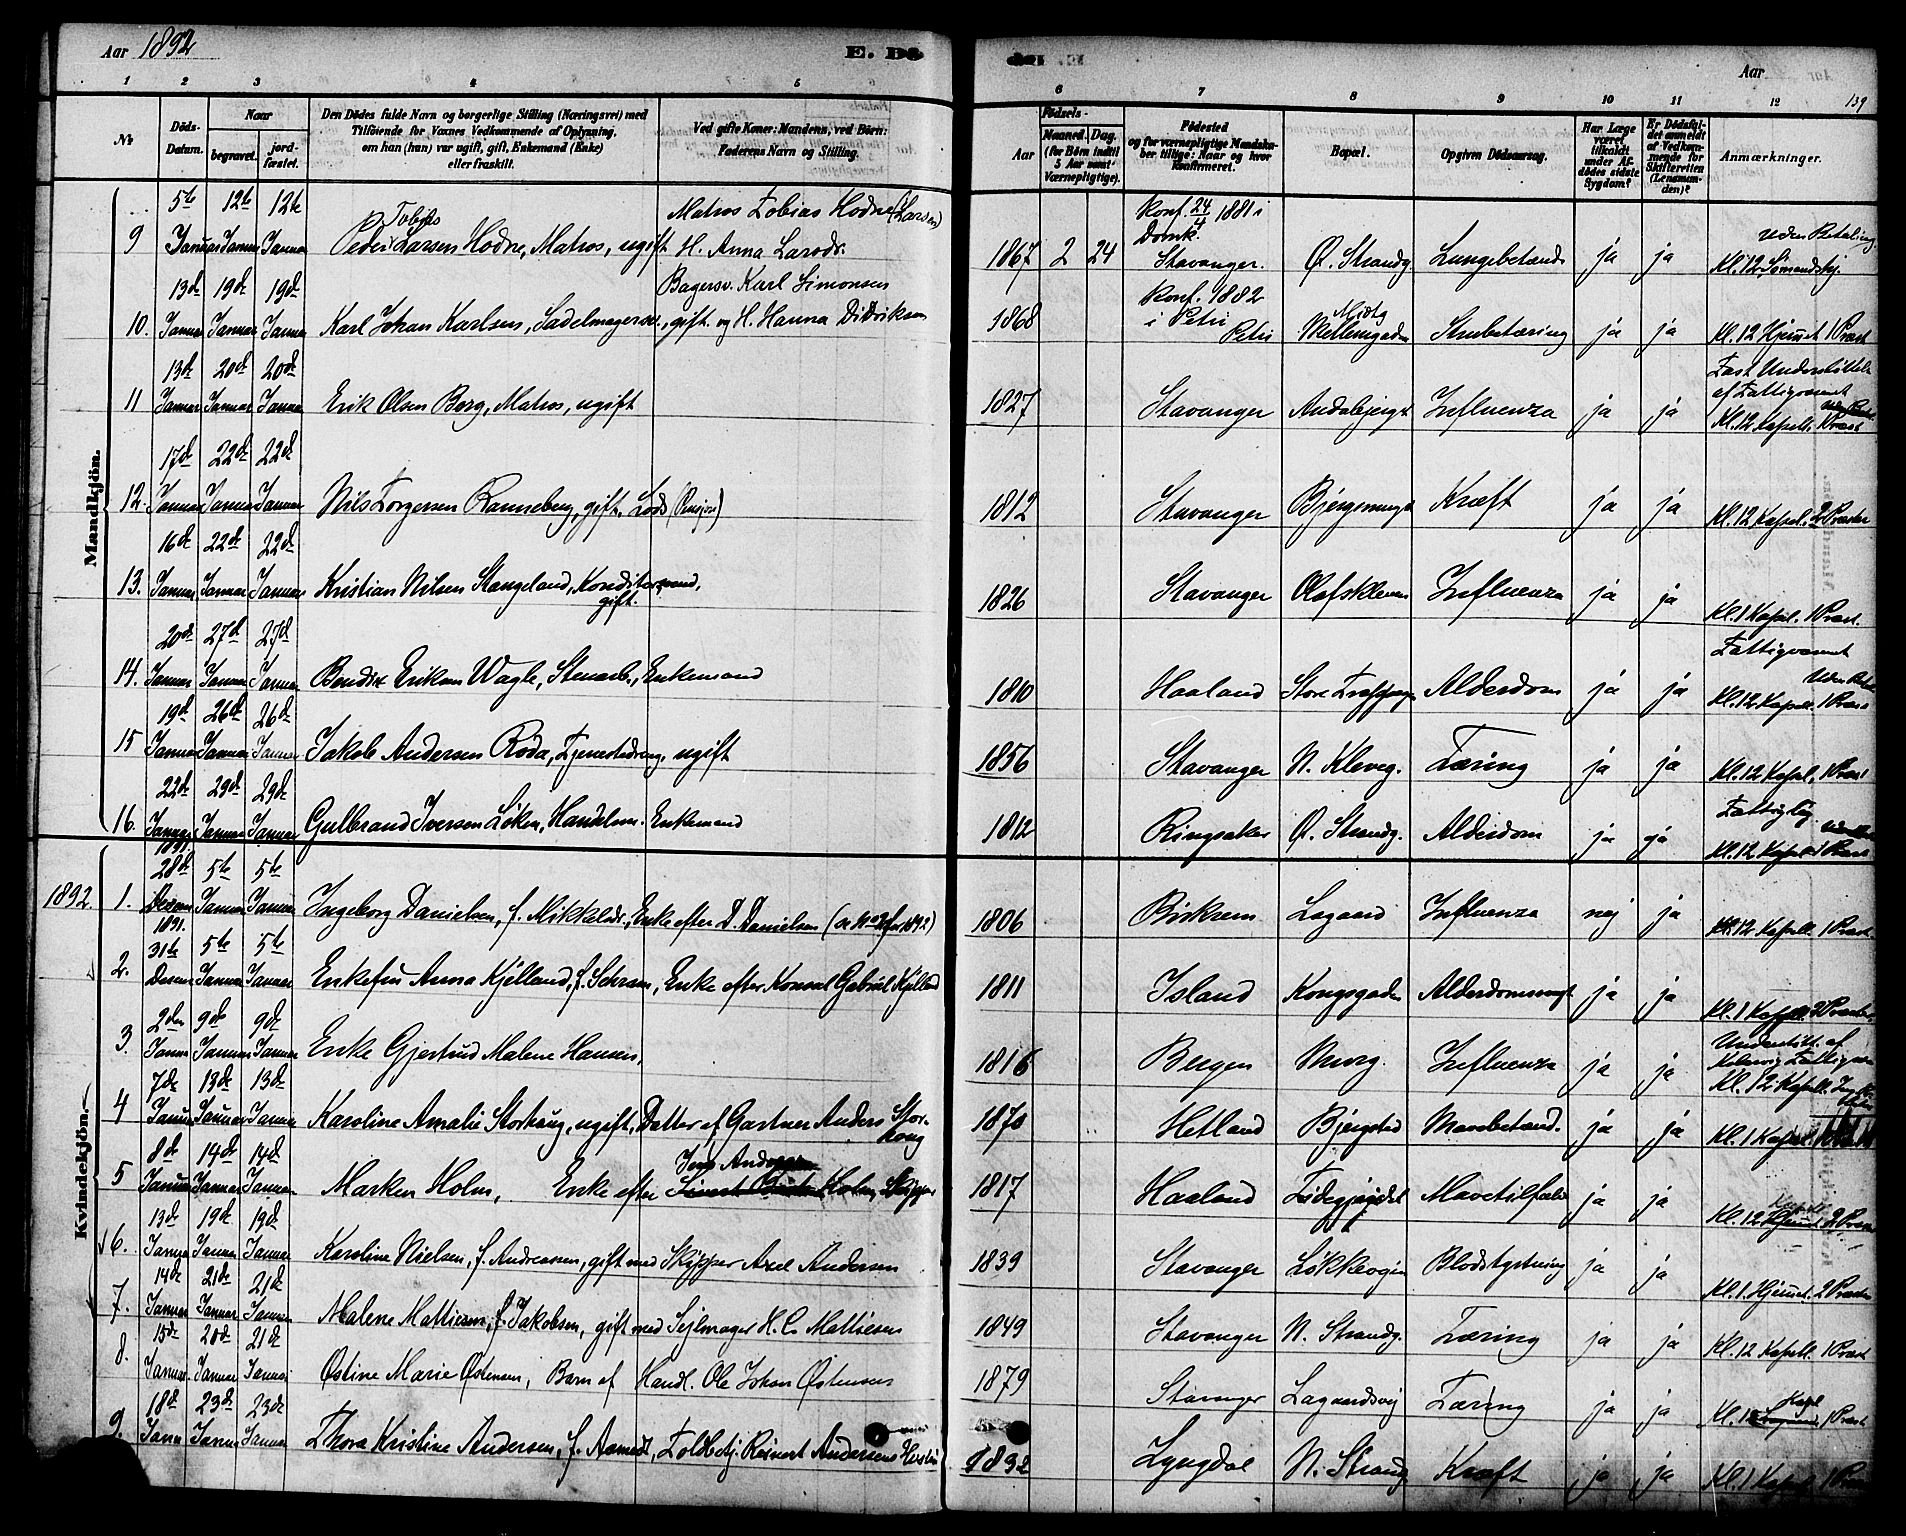 Aar 1892
E. Dö
Aar
139
1 2 3 4 5 6 7 8 9 10 11 12
No
Döds-Datum.
Naar
begravet.
jord-fæstet.
Den Dödes fulde Navn og borgerlige Stilling (Næringsvei) med
Tilföiende for Voxnes Vedkommende af Oplysning,
om han (hun) var ugift, gift, Enkemand (Enke)
eller fraskilt.
Ved gifte Koner: Mandens, ved Börn:
Faderens Navn og Stilling.
Födsels-
Aar
Maaned. Dag.
(for Børn indtil
5 Aar samt
Værnepligtige).
Födested
og for værnepligtige Mandska-
ber tillige: Naar og hvor
konfirmeret.
Bopæl.
Opgiven Dödsaarsag.
Har Læge
været
tilkaldt
under Af-
dödes sidste
Sygdom?
Er Dödsfal-
det anmeldt
af Vedkom-
mende for
Skifteretten
(Lensman-
den)?
Anmærkninger.
Mandkjön.
5te 12te 12te Tobias Matros Tobias Hodne (Larsen) Konf. 24/4 1881 i Domk. Uden Betaling
9 Januar Januar Januar Peder Larsen Hodne, Matros, ugift H. Anna Larsdr. 1867 2 24 Stavanger. Ø. Strandg. Lungebetænd. ja ja Kl. 12
13de 19de 19de Bagersv. Karl Simonsen Konf. 1882 i Petri
10. Januar Januar Januar Karl Johan Karlsen, Sadelmagersv., gift. og H. Hanna Didriksen 1868 Petri Mellemgaden Strubetæring ja ja Kl. 12 Hjemmet 1 Præst
13de 20de 20de Fast Understöttelse af Fattigvæsnet
11 Januar Januar Januar Erik Olsen Borg, Matros, ugift 1827 Stavanger Andabjergt Influenza ja ja Kl. 12 Kapell. 1 Præst
17de 22de 22de
12. Januar Januar Januar Nils Torgersen Ranneberg, gift. Lods 1812 Stavanger Bjergsmuget Kræft ja ja Kl. 12 Kapel. 2 Præster
16de 22de 22de
13. Januar Januar Januar Kristian Nilsen Stangeland, gift. 1826 Stavanger Olafskleven Influenza ja ja Kl. 1 Kapel. 1 Præst.
20de 27de 27de Fattigvæsnet
14. Januar Januar Januar Bendix Eriksen Wagle, Stenarb., Enkemand 1810 Haaland Store Alderdom ja ja Kl. 12 Kapell. 1 Præst
19de 26de 26de
15 Januar Januar Januar Jakob Andersen Roda, Tjenestedreng, ugift 1856 Stavanger N. Kleveg. Tæring ja ja Kl. 12 Kapel. 1 Præst
22de 29de 29de Fattiglig
16. Januar Januar Januar Gulbrand Iversen Löken, Handelsm. Enkemand 1812 Ringsaker Ø. Strandg. Alderdom ja ja Kl. 12 Kapel 1 Præst
Kvindekjön.
1891 28de 5te 5te
1892. 1. Januar Januar Ingeborg Danielsen, f. Mikkelsdr., Enke efter D. Danielsen 1806 Birkrem Lagaard Influenza nej ja Kl. 12 Kapell. 1 Præst.
1891. 31te 5te 5te
2. Januar Januar Enkefru Anna Kjelland, f. Schram, Enke efter Konsul Gabriel Kjelland 1811 Island Kongsgaden ja ja Kl. 1 Kapel. 2 Præster.
2den 9de 9de Understött. af
3. Januar Januar Enke Gjertrud Malene Hansen, 1816 Bergen Murg. Influenza ja ja Kl. 12 Kapell.
7de 13de 13de
4 Januar Januar Januar Karoline Amalie Storhaug, ugift, Datter af Gartner Anders Storhaug 1870 Hetland Bjergsted Mavebetænd. ja ja Kl. 1 Kapel.
8de 14de 14de Jens Andreas
5 Januar Januar Januar Marken Holm, Enke efter Holm, Skipper 1817 Haaland Mavetilfælde ja ja Kl. 12 2 Præster
13de 19de 19de
6. Januar Januar Januar Karoline Nielsen, f. Andreassen, gift med Skipper Axel Andersen 1839 Stavanger Blodstyrtning ja ja Kl. 1 Hjemmet. 2 Præster
14de 21de 21de
7. Januar Januar Januar Malene Mattiesen, f. Jakobsen, gift med Sejlmager H. C. Mattiesen 1849 Stavanger N. Strandg. Tæring ja ja Kl. 12 Kapell. 1 Præst
15de 20de 21de
8. Januar. Januar. Januar Østine Marie Østensen, Barn af Handl. Ole Johan Østensen 1879 Stavanger Lagaardsvej Tæring ja ja Kapel 1 Præst
18de 23de 23de
9. Januar Januar Thora Kristine Andersen, f. Toldbetj. Reinert Andersens 1832 Lyngdal N. Strandg. Kræft ja ja Kl. 1 Kapel